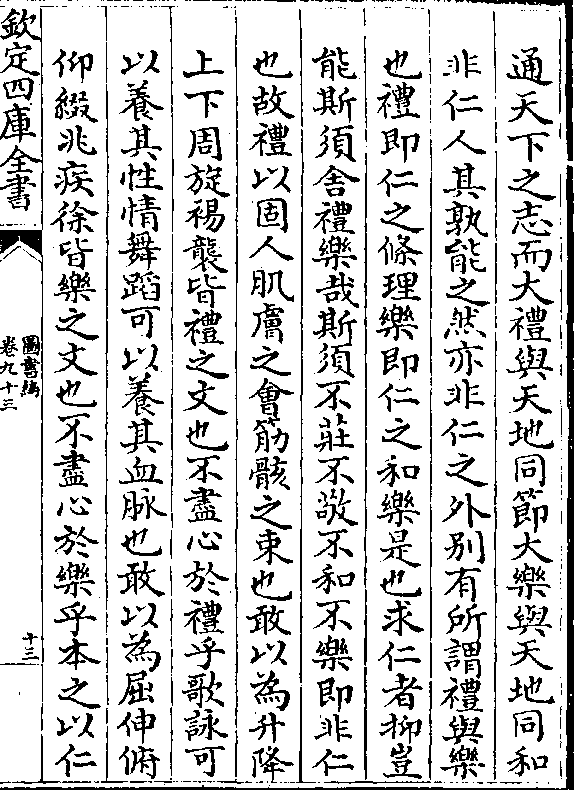 通天下之志而大禮與天地同節大樂與天地同和
非仁人其孰能之然亦非仁之外别有所謂禮與樂
也禮即仁之條理樂即仁之和樂是也求仁者抑豈
能斯須舍禮樂哉斯須不莊不敬不和不樂即非仁
也故禮以固人肌膚之會筋骸之束也敢以為升降
上下周旋裼襲皆禮之文也不盡心於禮乎歌詠可
以養其性情舞蹈可以養其血脉也敢以為屈伸俯
仰綴兆疾徐皆樂之文也不盡心於樂乎本之以仁
欽定四庫全書
圖書編
卷九十三
十三